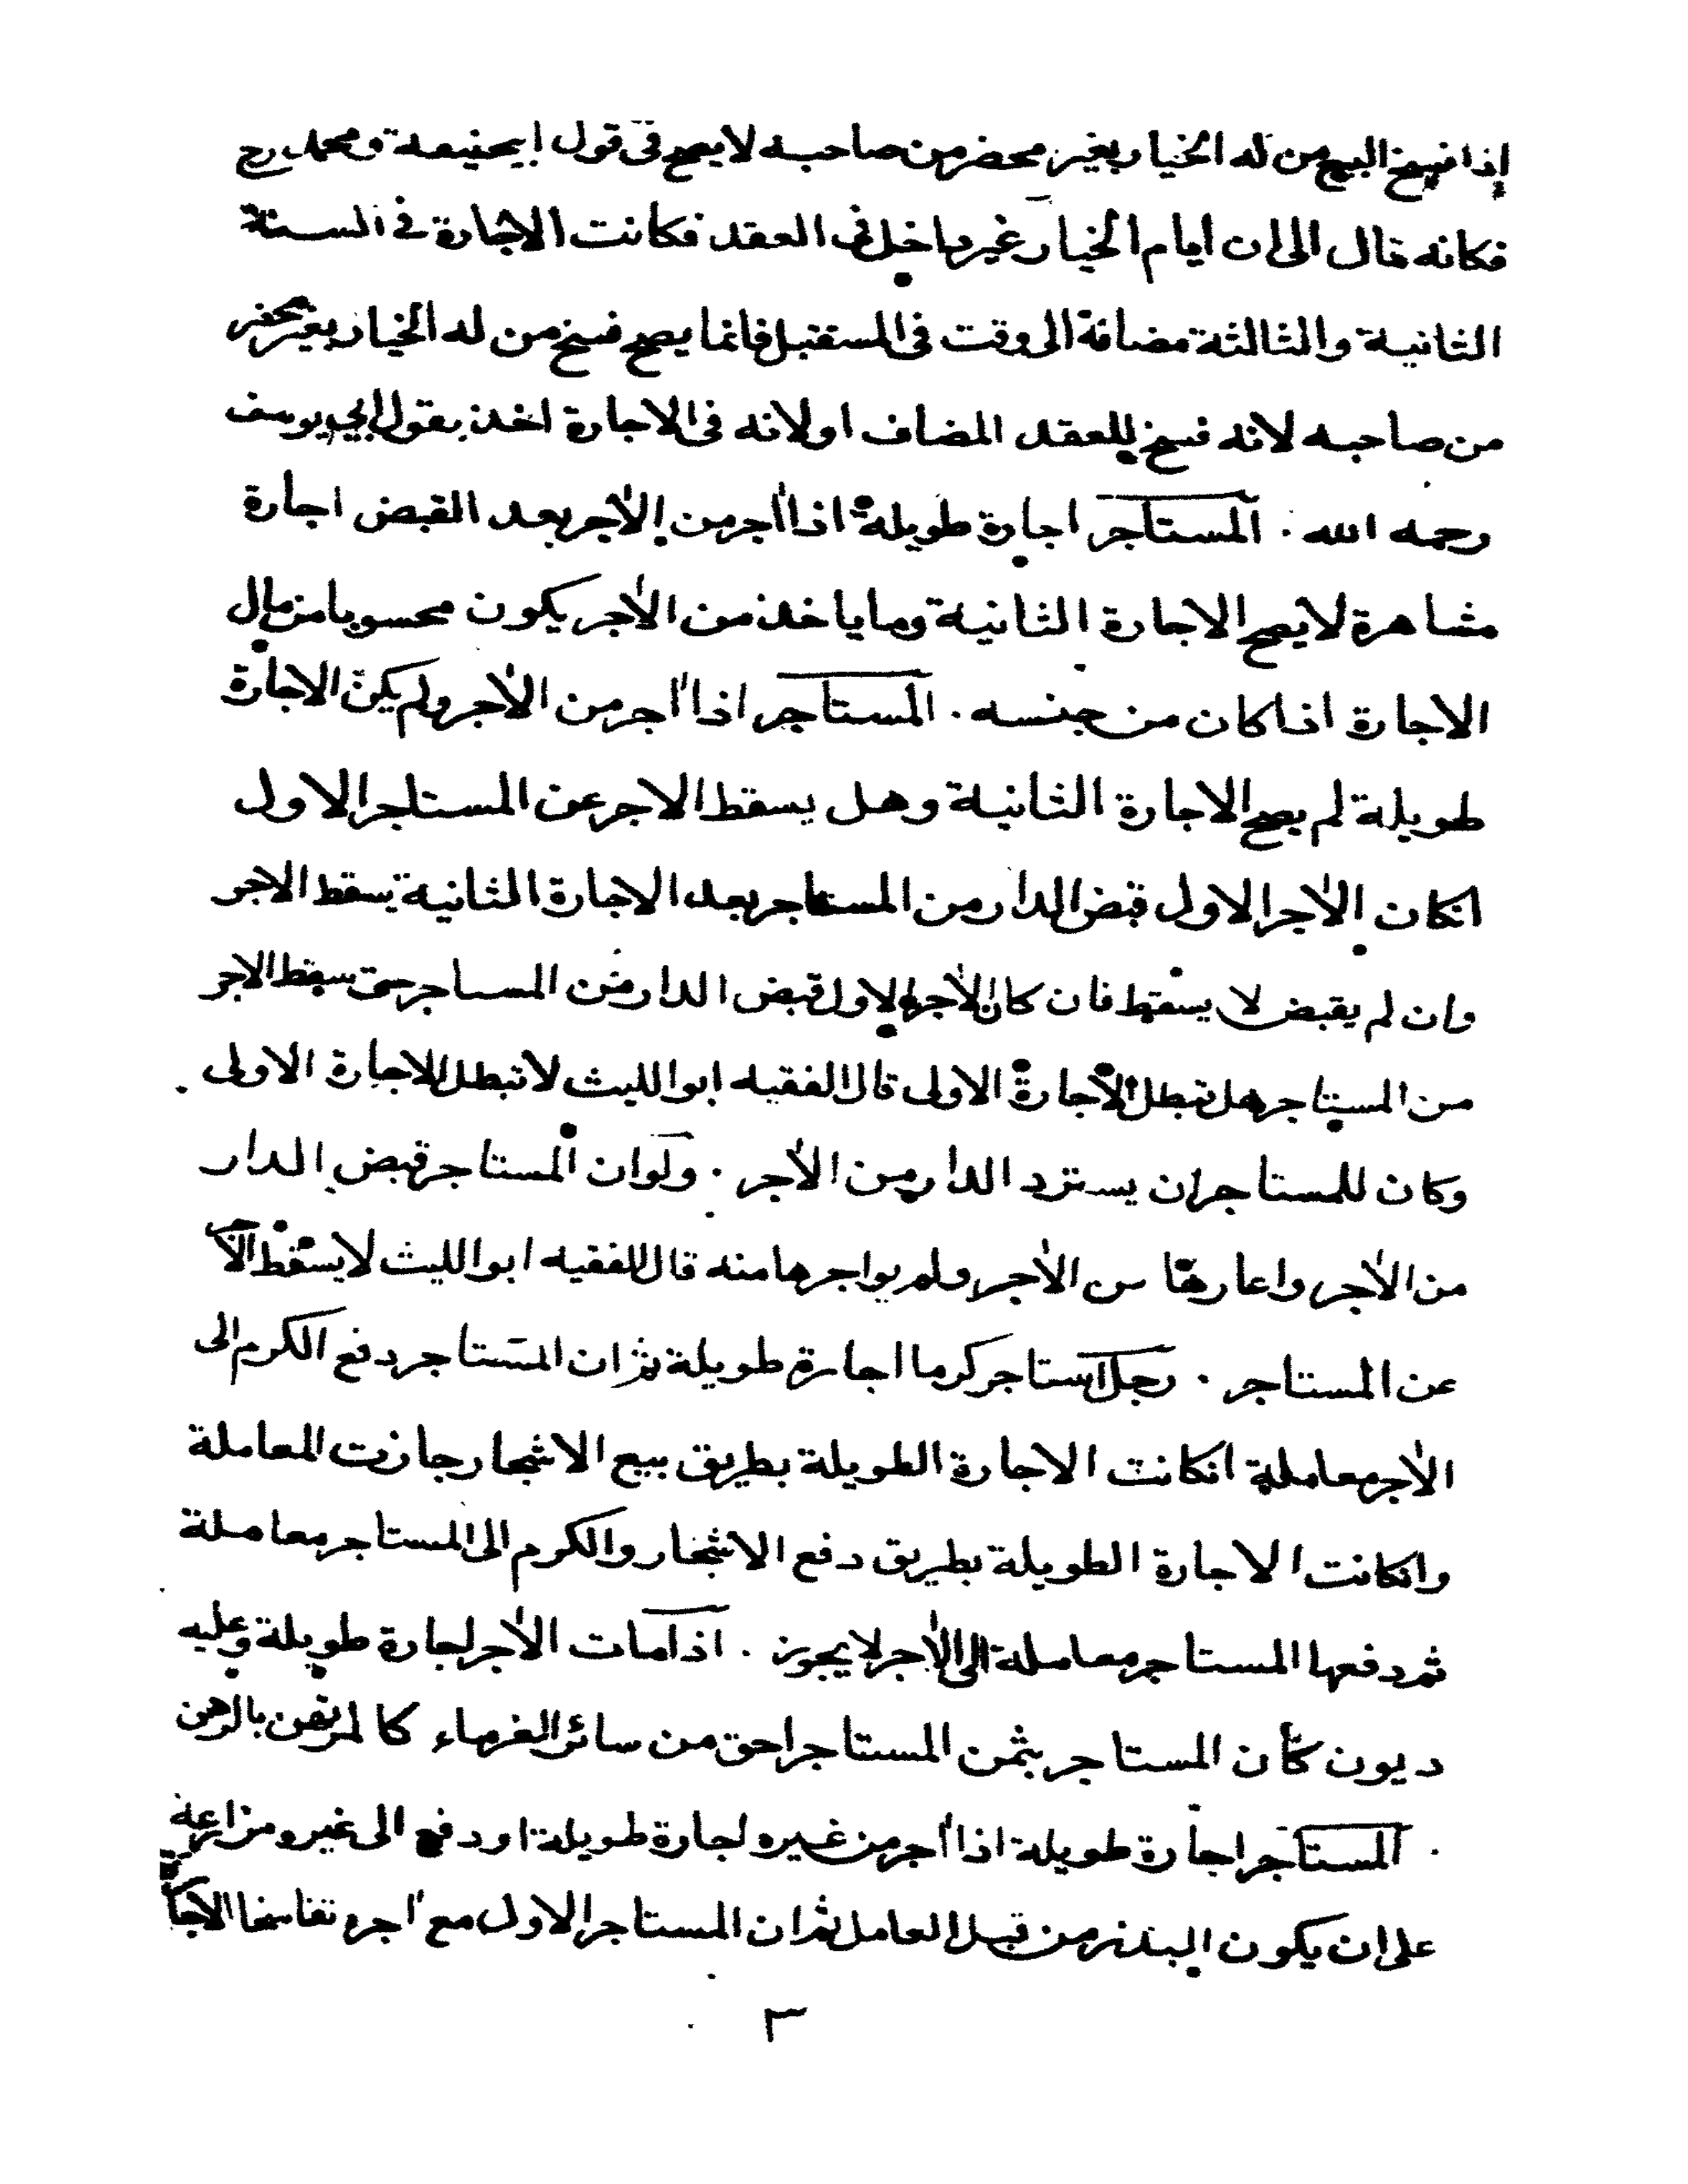 إذا فسخ البيع من له الخيار بغير محضر من صاحبه لا يصح في قول ابي حنيفة ومحمد رح
فكانه قال الى ان ايام الخيار غير داخل في العقد فكانت الاجارة في السنة
الثانية والثالثة مضافة الى وقت في المستقبل فانما يصح فسخ من له الخيار بغير محضر
من صاحبه لانه فسخ للعقد المضاف اولانه في الاجارة اخذ بقول ابي يوسف
رحمه الله . المستاجر اجارة طويلة اذا اٰجر من الاٰجر بعد القبض اجارة
مشاهرة لا يصح الاجارة الثانية وما ياخذ من الاٰجر يكون محسوبا من مال
الاجارة اذا كان من جنسه . المستاجر اذا اٰجر من الاٰجر ولم يكن الاجارة
طويلة لم يصح الاجارة الثانية وهل يسقط الاجر عن المستاجر الاول
انكان الاٰجر الاول قبض الدار من المستاجر بعد الاجارة الثانية يسقط الاجر
وان لم يقبض لا يسقط فان كان الاٰجر الاول قبض الدار من المستاجر حتى سقط الاجر
من المستاجر هل تبطل الاجارة الاولى قال الفقيه ابو الليث لا تبطل الاجارة الاولى .
وكان للمستاجر ان يسترد الدار من الاٰجر . ولو ان المستاجر قبض الدار
من الاٰجر واعارها من الاٰجر ولم يواجرها منه قال الفقيه ابو الليث لا يسقط الاجر
عن المستاجر . رجل استاجر كرما اجارة طويلة ثم ان المستاجر دفع الكرم الى
الاٰجر معاملة انكانت الاجارة الطويلة بطريق بيع الاشجار جازت المعاملة
وانكانت الاجارة الطويلة بطريق دفع الاشجار والكرم الى المستاجر معاملة
ثم دفعها المستاجر معاملة الى الاٰجر لا يجوز . اذا مات الاٰجر اجارة طويلة وعليه
ديون كان المستاجر بثمن المستاجر احق من سائر الغرماء كالمرتهن بالرهن
. المستاجر اجارة طويلة اذا اٰجر من غيره اجارة طويلة او دفع الى غيره مزارعة
على ان يكون البذر من قبل العامل ثم ان المستاجر الاول مع اٰجره تفاسخا الاجارة
٣